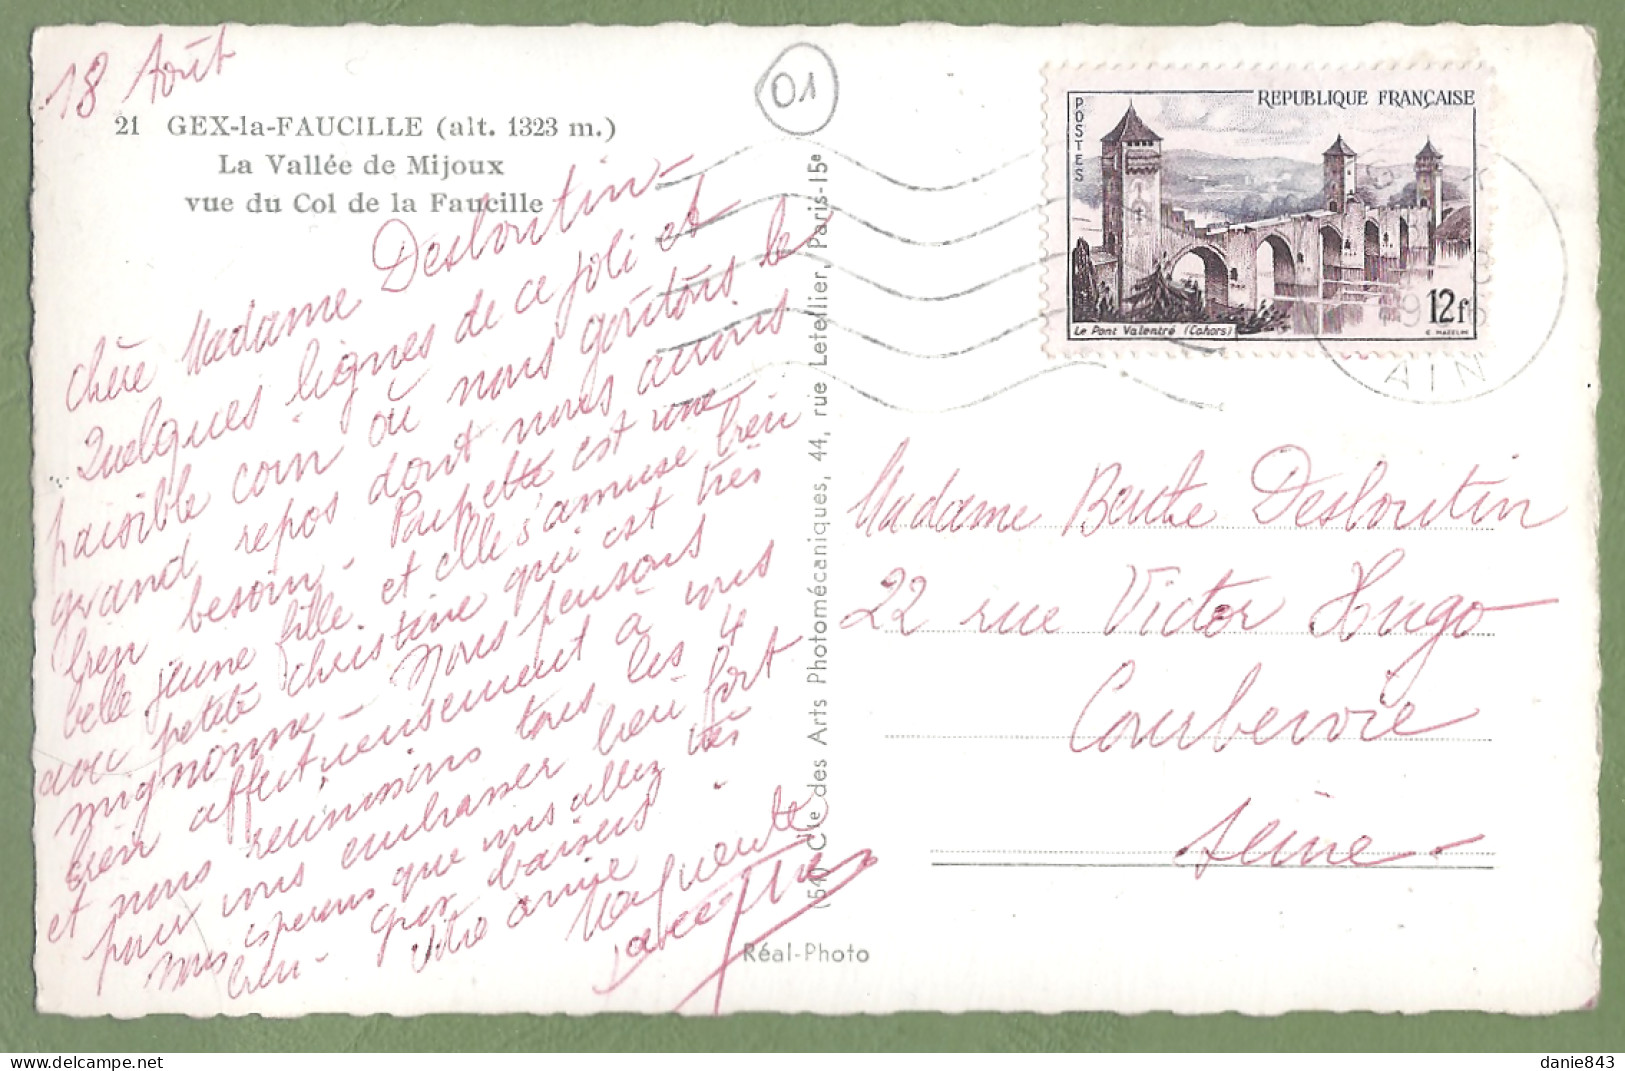 18 Août
21 GEX-la-FAUCILLE (alt. 1323 m.)
La Vallée de Mijoux
vue du Col de la Faucille
Chère Madame Desloutin -
Quelques lignes de ce joli et
paisible coin où nous goûtons le
grand repos dont nous avons
bien besoin - Paupette est une
belle jeune fille et elle s'amuse bien
avec petite christine qui est très
mignonne - Nous pensons
bien affectueusement à vous
et nous réunissons tous les 4
pour vous embrasser bien fort
Nous espérons que vous allez très
bien - gros baisers
Votre amie
Marguerite
01
(540) Cie des Arts Photomécaniques, 44, rue Letellier, Paris-15e
Réal-Photo
POSTES
REPUBLIQUE FRANÇAISE
12f
Le Pont Valentré (Cahors)
C. MAZELIN
AIN
Madame Berthe Desloutin
22 rue Victor Hugo
Courbevoie
Seine -
danie843